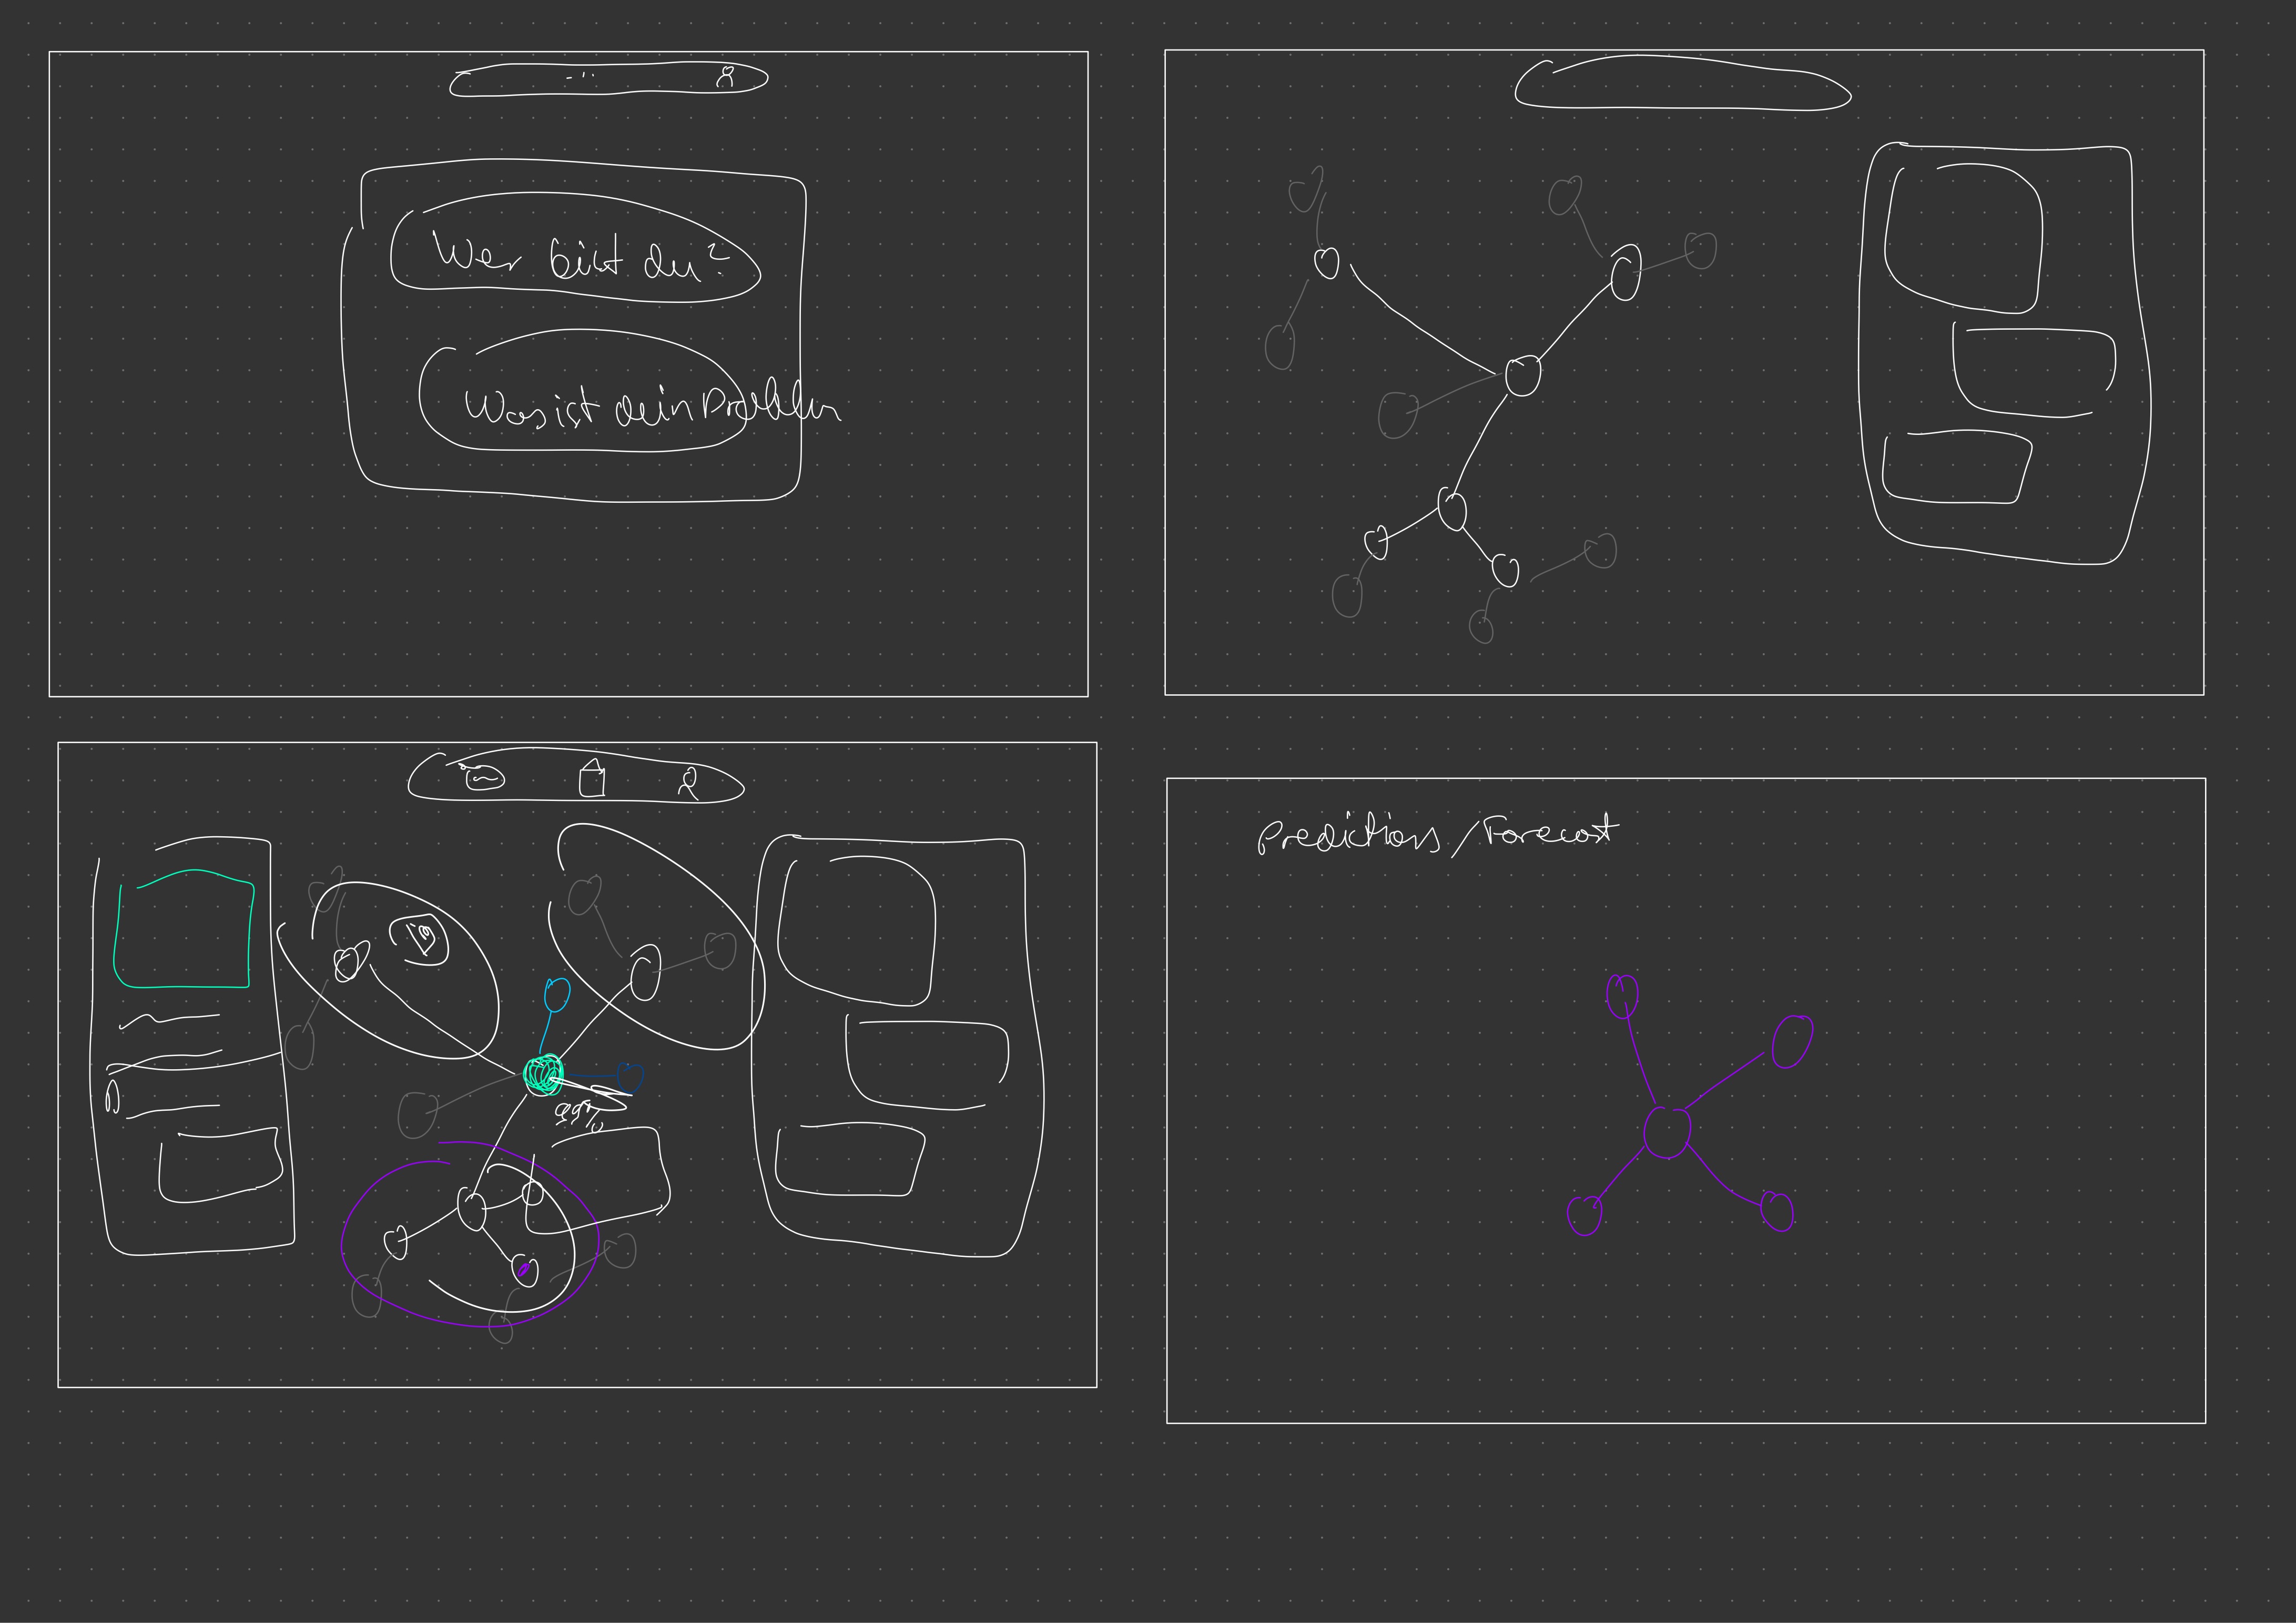 Wer bist du?
Was ist dein Problem
Predictions/Forecast